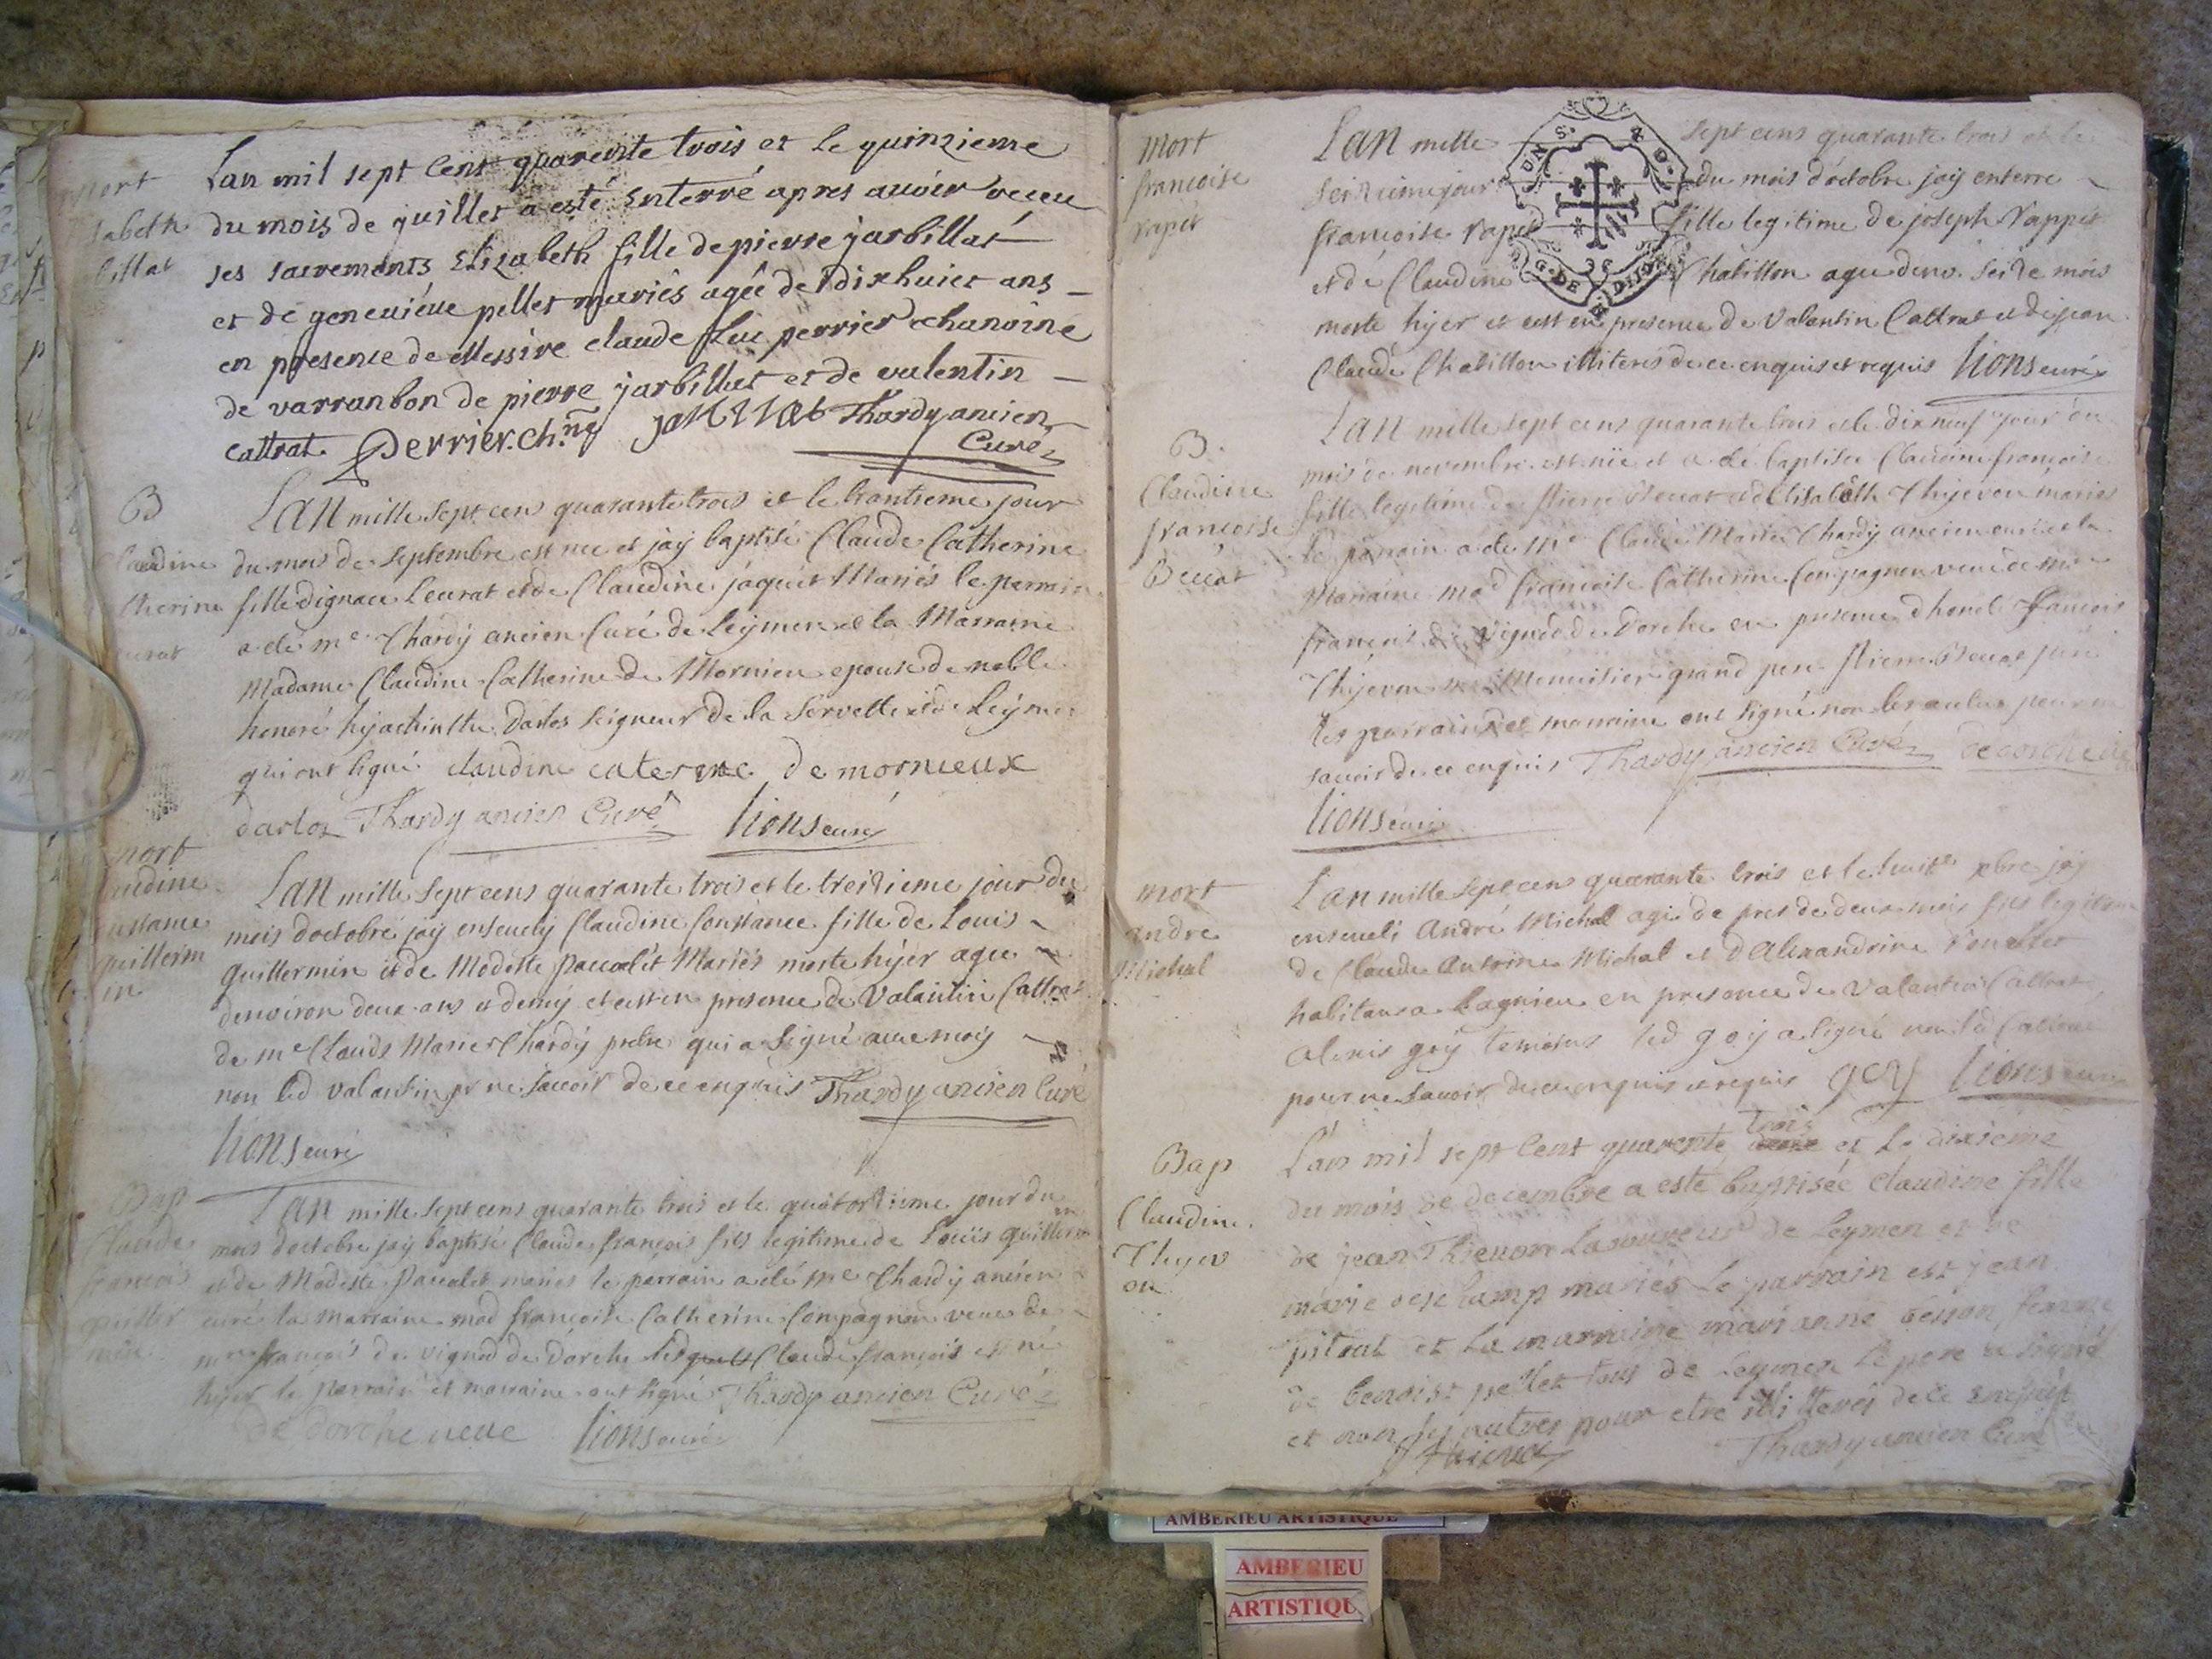 mort
sabeth
billat
Lan mil sept Cent quarente trois et le quinzieme
du mois de juillet a esté Enterré apres avoir receu
ses sacrements Elizabeth fille de pierre jarbillat
et de genevieve pellet mariés agée de dixhuict ans
en presence de Messire claude perrier chanoine
de varranbon de pierre jarbillat et de valentin
cattrat. Perrier. ch.ne Thardy ancien
Curé
B
laudine
therine
eurat
Lan mille sept cens quarante trois et le trantieme jour
du mois de septembre est nee et jaÿ baptisé Claude Catherine
fille dignace Leurat et de Claudine jaquet Mariés le parrain
a ete me Thardÿ ancien Curé de Leÿmen et la Marraine
Madame Claudine Catherine de Mornieu epouse de noble
honoré hÿacinthe Darlos seigneur de la Servette et de Leÿmen
qui ont signé claudine caterine de mornieux
darloz Thardy ancien Curé lions curé
mort
audine
nstance
guillerm
in
Lan mille Sept cens quarante trois et le treizieme jour du
mois doctobre jaÿ ensevelÿ Claudine Constance fille de Louis
Guillermin et de Modeste pacalet Mariés morte hÿer agee
denviron deux ans et demÿ et cest en presence de Valantin Cattrat
de me Claude Marie Thardÿ prebre qui a signé avec moÿ
non led valantin pr ne scavoir de ce enquis Thardy ancien Curé
lions curé
Bap
Claude
francois
guiller
min.
Lan mille sept cens quarante trois et le quatorzieme jour du
mois doctobre jaÿ baptisé Claude françois fils legitime de Louis guillermin
et de Modeste Pacalet mariés le parrain a eté me Thardÿ ancien
curé la marraine mad françoise Catherine Compagnon veuve de
françois de vignod de Dorche Claude françois est né
hÿer le parrain et marraine ont signé Thardy ancien Curé
de dorche veve lions curé
mort
francoise
rapet
Lan mille sept cens quarante trois et le
seizieme jour du mois doctobre jaÿ enterre
francoise rapet fille legitime de joseph rappet
et de Claudine Chabillon agee denv. seize mois
morte hÿer et cest en presence de valentin Cattrat et de jean
Claude Chabillon illiterés de ce enquis et requis lions curé
B.
Claudine
françoise
Beccat
Lan mille sept cens quarante trois et le dix neuf jour du
mois de novembre est née et a eté baptisée Claudine françoise
fille legitime de Pierre Beccat et dElisabeth Thÿevon mariés
le parrain a ete me Claude Marie Thardÿ ancien curé et la
Marraine mad françoise Catherine Compagnon veuve de
françois de vignod de Dorche en presence dhonele francois
Thÿevon Menuisier grand pere Pierre Beccat pere
les parrain et marraine ont signé non les autres pour ne
scavoir de ce enquis Thardy ancien Curé de dorche
lions curé
mort
andre
Michal
Lan mille sept cens quarante trois et le huite xbre jaÿ
enseveli André Michal agé de pres de deux mois fils legitime
de Claude Antoine Michal et dAlexandrine
habitans a Lagnieu en presence de valentin Cattrat
alexis goÿ temoins led goÿ a signé non led Cattrat
pour ne scavoir de ce enquis et requis goy lions curé
Bap
Claudine.
Thyev
on
Lan mil sept Cent quarente trois et le dixieme
du mois de decembre a esté baptisée claudine fille
de jean Thievon laboureur de Leymen et de
marie deschamp mariés Le parrain est jean
pitrat et La marraine marianne besson femme
de benoist pellet tous de Leymen Le pere a signé
et non les autres pour etre illiterés de ce enquis
Thardy ancien Curé
AMBERIEU ARTISTIQUE
AMBERIEU
ARTISTIQU